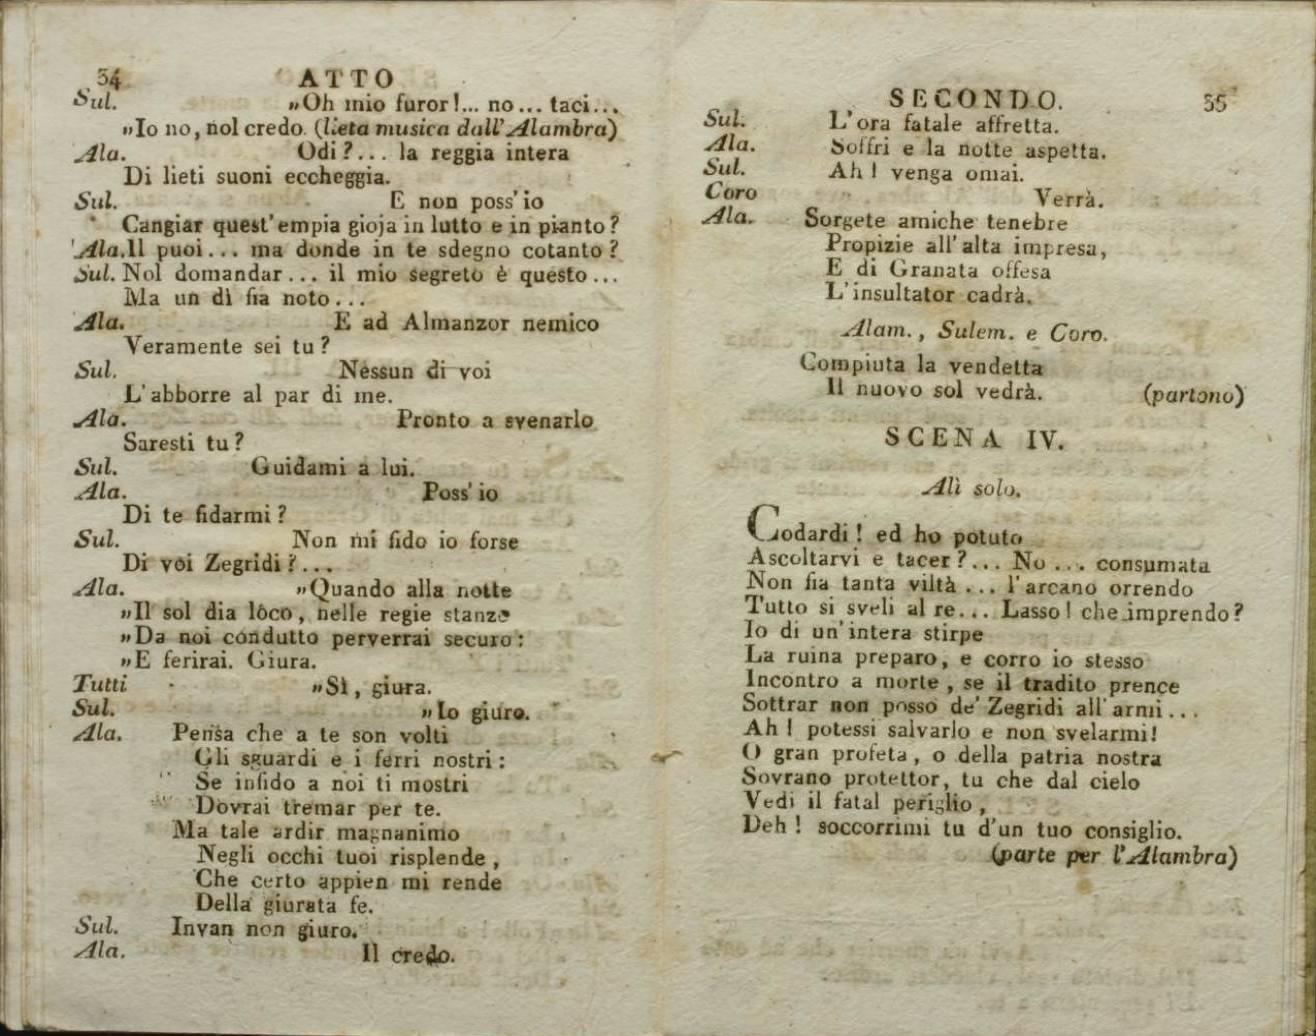 34 ATTO
Sul. „Oh mio furor!... no... taci...
„Io no, nol credo. (lieta musica dall'Alambra)
Ala. Odi?... la reggia intera
Di lieti suoni eccheggia.
Sul. E non poss'io
Cangiar quest'empia gioja in lutto e in pianto?
Ala. Il puoi... ma donde in te sdegno cotanto?
Sul. Nol domandar... il mio segreto è questo...
Ma un dì fia noto...
Ala. E ad Almanzor nemico
Veramente sei tu?
Sul. Nessun di voi
L'abborre al par di me.
Ala. Pronto a svenarlo
Saresti tu?
Sul. Guidami a lui.
Ala. Poss'io
Di te fidarmi?
Sul. Non mi fido io forse
Di voi Zegridi?...
Ala. „Quando alla notte
„Il sol dia lòco, nelle regie stanze
„Da noi condutto perverrai securo:
„E ferirai. Giura.
Tutti „Sì, giura.
Sul. „Io giuro.
Ala. Pensa che a te son volti
Gli sguardi e i ferri nostri:
Se infido a noi ti mostri
Dovrai tremar per te.
Ma tale ardir magnanimo
Negli occhi tuoi risplende,
Che certo appien mi rende
Della giurata fe.
Sul. Invan non giuro.
Ala. Il credo.
SECONDO. 35
Sul. L'ora fatale affretta.
Ala. Soffri e la notte aspetta.
Sul. Ah! venga omai.
Coro Verrà.
Ala. Sorgete amiche tenebre
Propizie all'alta impresa,
E di Granata offesa
L'insultator cadrà.
Alam., Sulem. e Coro.
Compiuta la vendetta
Il nuovo sol vedrà. (partono)
SCENA IV.
Alì solo.
Codardi! ed ho potuto
Ascoltarvi e tacer?... No... consumata
Non fia tanta viltà... l'arcano orrendo
Tutto si sveli al re... Lasso! che imprendo?
Io di un'intera stirpe
La ruina preparo, e corro io stesso
Incontro a morte, se il tradito prence
Sottrar non posso de' Zegridi all'armi...
Ah! potessi salvarlo e non svelarmi!
O gran profeta, o della patria nostra
Sovrano protettor, tu che dal cielo
Vedi il fatal periglio,
Deh! soccorrimi tu d'un tuo consiglio.
(parte per l'Alambra)